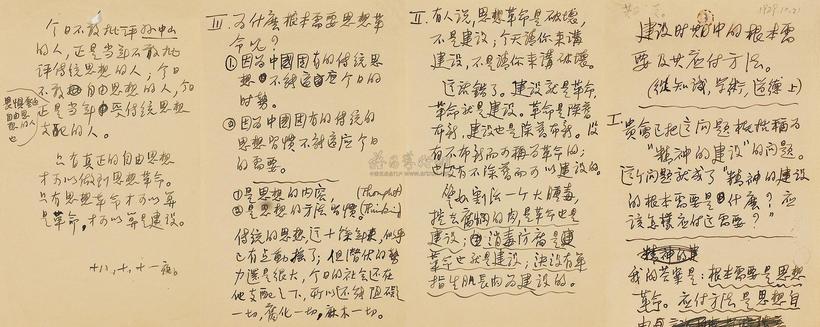 1929.10.21
建设时期中的根本需
要及其应付方法。
(从知识,学术,道德上)
I. 贵会已把这问题概括称为
“精神的建设”的问题。
这个问题就成了“精神的建设
的根本需要是什么?应
该怎样应付这需要?”
我的答案是:根本需要是思想
革命。应付方法是思想自
II. 有人说,思想革命是破坏,
不是建设;今天请你来讲
建设,不是请你来讲破坏。
这话错了。建设就是革命,
革命就是建设。革命是除旧
布新,建设也是除旧布新。没
有不布新而可称为革命的;
也没有不除旧而可以建设的。
譬如割治一个大肿毒,
挖去腐烂的肉是革命也是
建设;消毒防腐是建
革命也就是建设;决没有单
指生肌长肉为建设的。
III. 为什么根本需要思想革
命呢?
①因为中國固有的传统思
想不能适应今日的
时势。
②因为中國固有的传统的
思想習慣不能适应今日
的需要。
①是思想的内容,(Thought)
②是思想的方法習慣。(Thinking)
传统的思想,这十餘年来,似乎
已有点動摇了;但潜伏的势
力還是很大,今日的社会还在
他支配之下,所以不能阻碍
一切,腐化一切,麻木一切。
今日不敢批评孙中山
的人,正是当年不敢批
评传统思想的人;今日
不敢自由思想的人,
正是当年受传统思想
支配的人。
畏惧
自由思
想的人
也
只有真正的自由思想
才可以做到思想革命。
只有思想革命才可以算
是革命,才可以算是建设。
十八,十,十一夜。